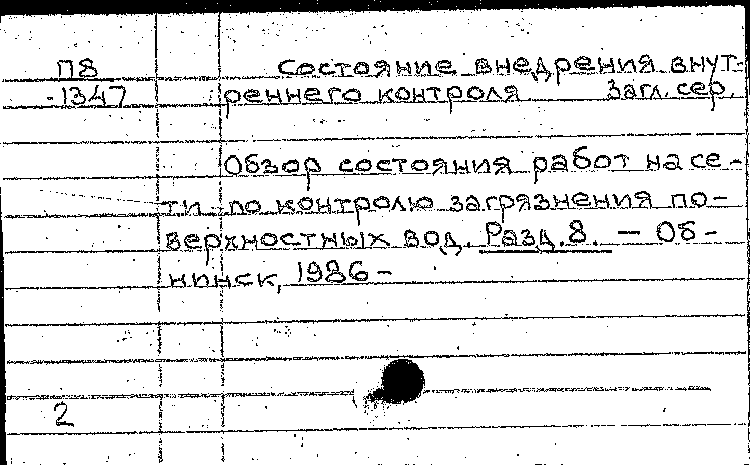 П8 Состояние внедрения внут-
-1347 реннего контроля Загл. сер.
Обзор состояния работ на се-
ти по контролю загрязнения по-
верхностных вод. Разд. 8. — Об-
нинск, 1986 –
2